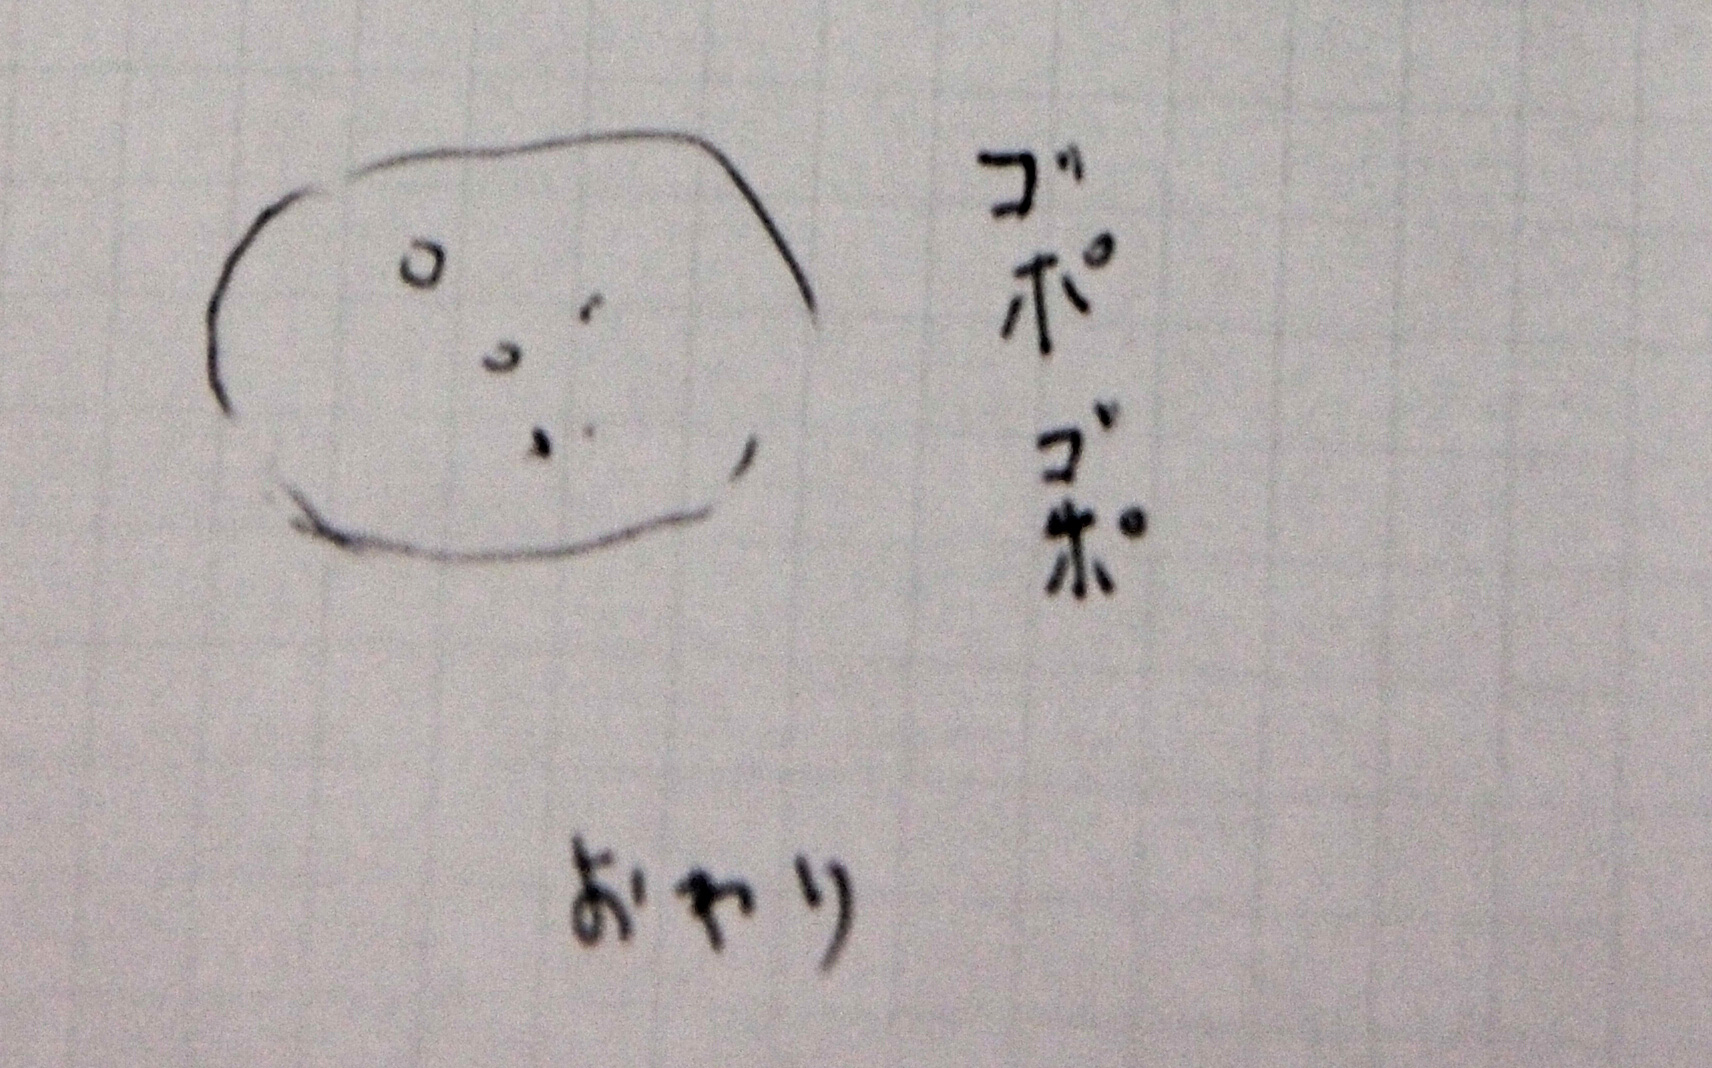 ゴポゴポ
おわり